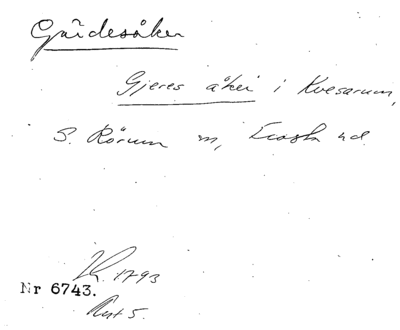 Gärdesåker
Gjeres åker i Kvesarum,
S. Rörum sn, Frosta hd.
1793
Nr 6743.